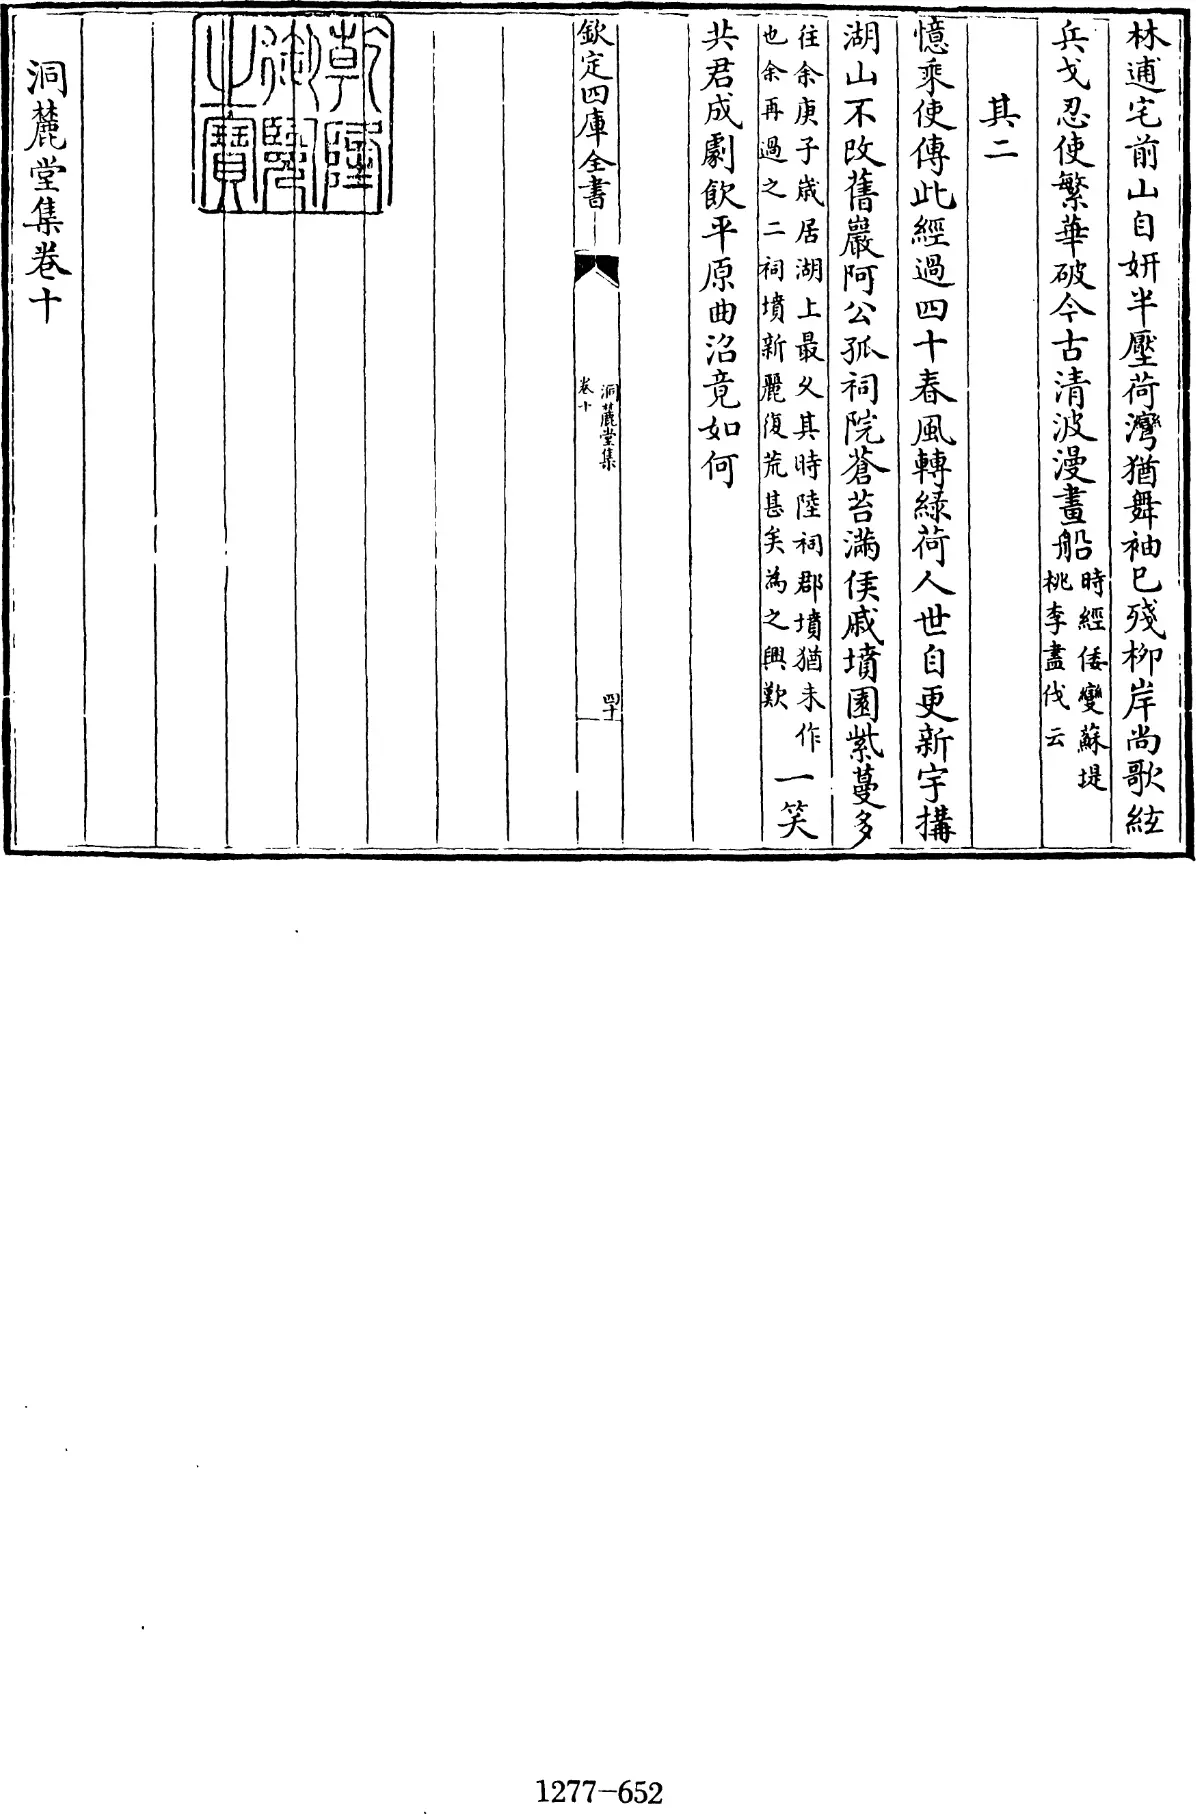 林逋宅前山自妍半壓荷灣猶舞袖已殘柳岸尚歌絃
兵戈忍使繁華破今古清波漫畫船時經倭變蘇堤
桃李盡伐云
其二
憶乘使傳此經過四十春風轉綠荷人世自更新宇搆
湖山不改舊巖阿公孤祠院蒼苔滿侯戚墳園紫蔓多
往余庚子嵗居湖上最久其時陸祠郡墳猶未作
也余再過之二祠墳新麗復荒甚矣為之興歎
一笑
共君成劇飲平原曲沼竟如何
欽定四庫全書
洞麓堂集
卷十
四十
乾隆
御覽
之寶
洞麓堂集卷十
1277-652